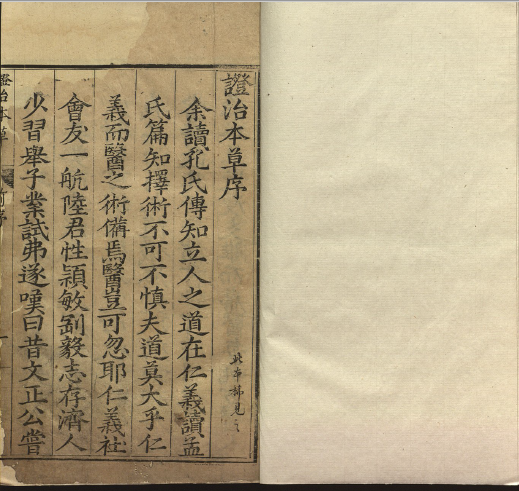 證治本草序
此中稀見之
余讀孔氏傳知立人之道在仁義讀孟
氏篇知擇術不可不慎夫道莫大乎仁
義而醫之術備焉醫豈可忽耶仁義社
會友一航陸君性穎敏剛毅志存濟人
少習舉子業試弗遂嘆曰昔文正公嘗
證治本草